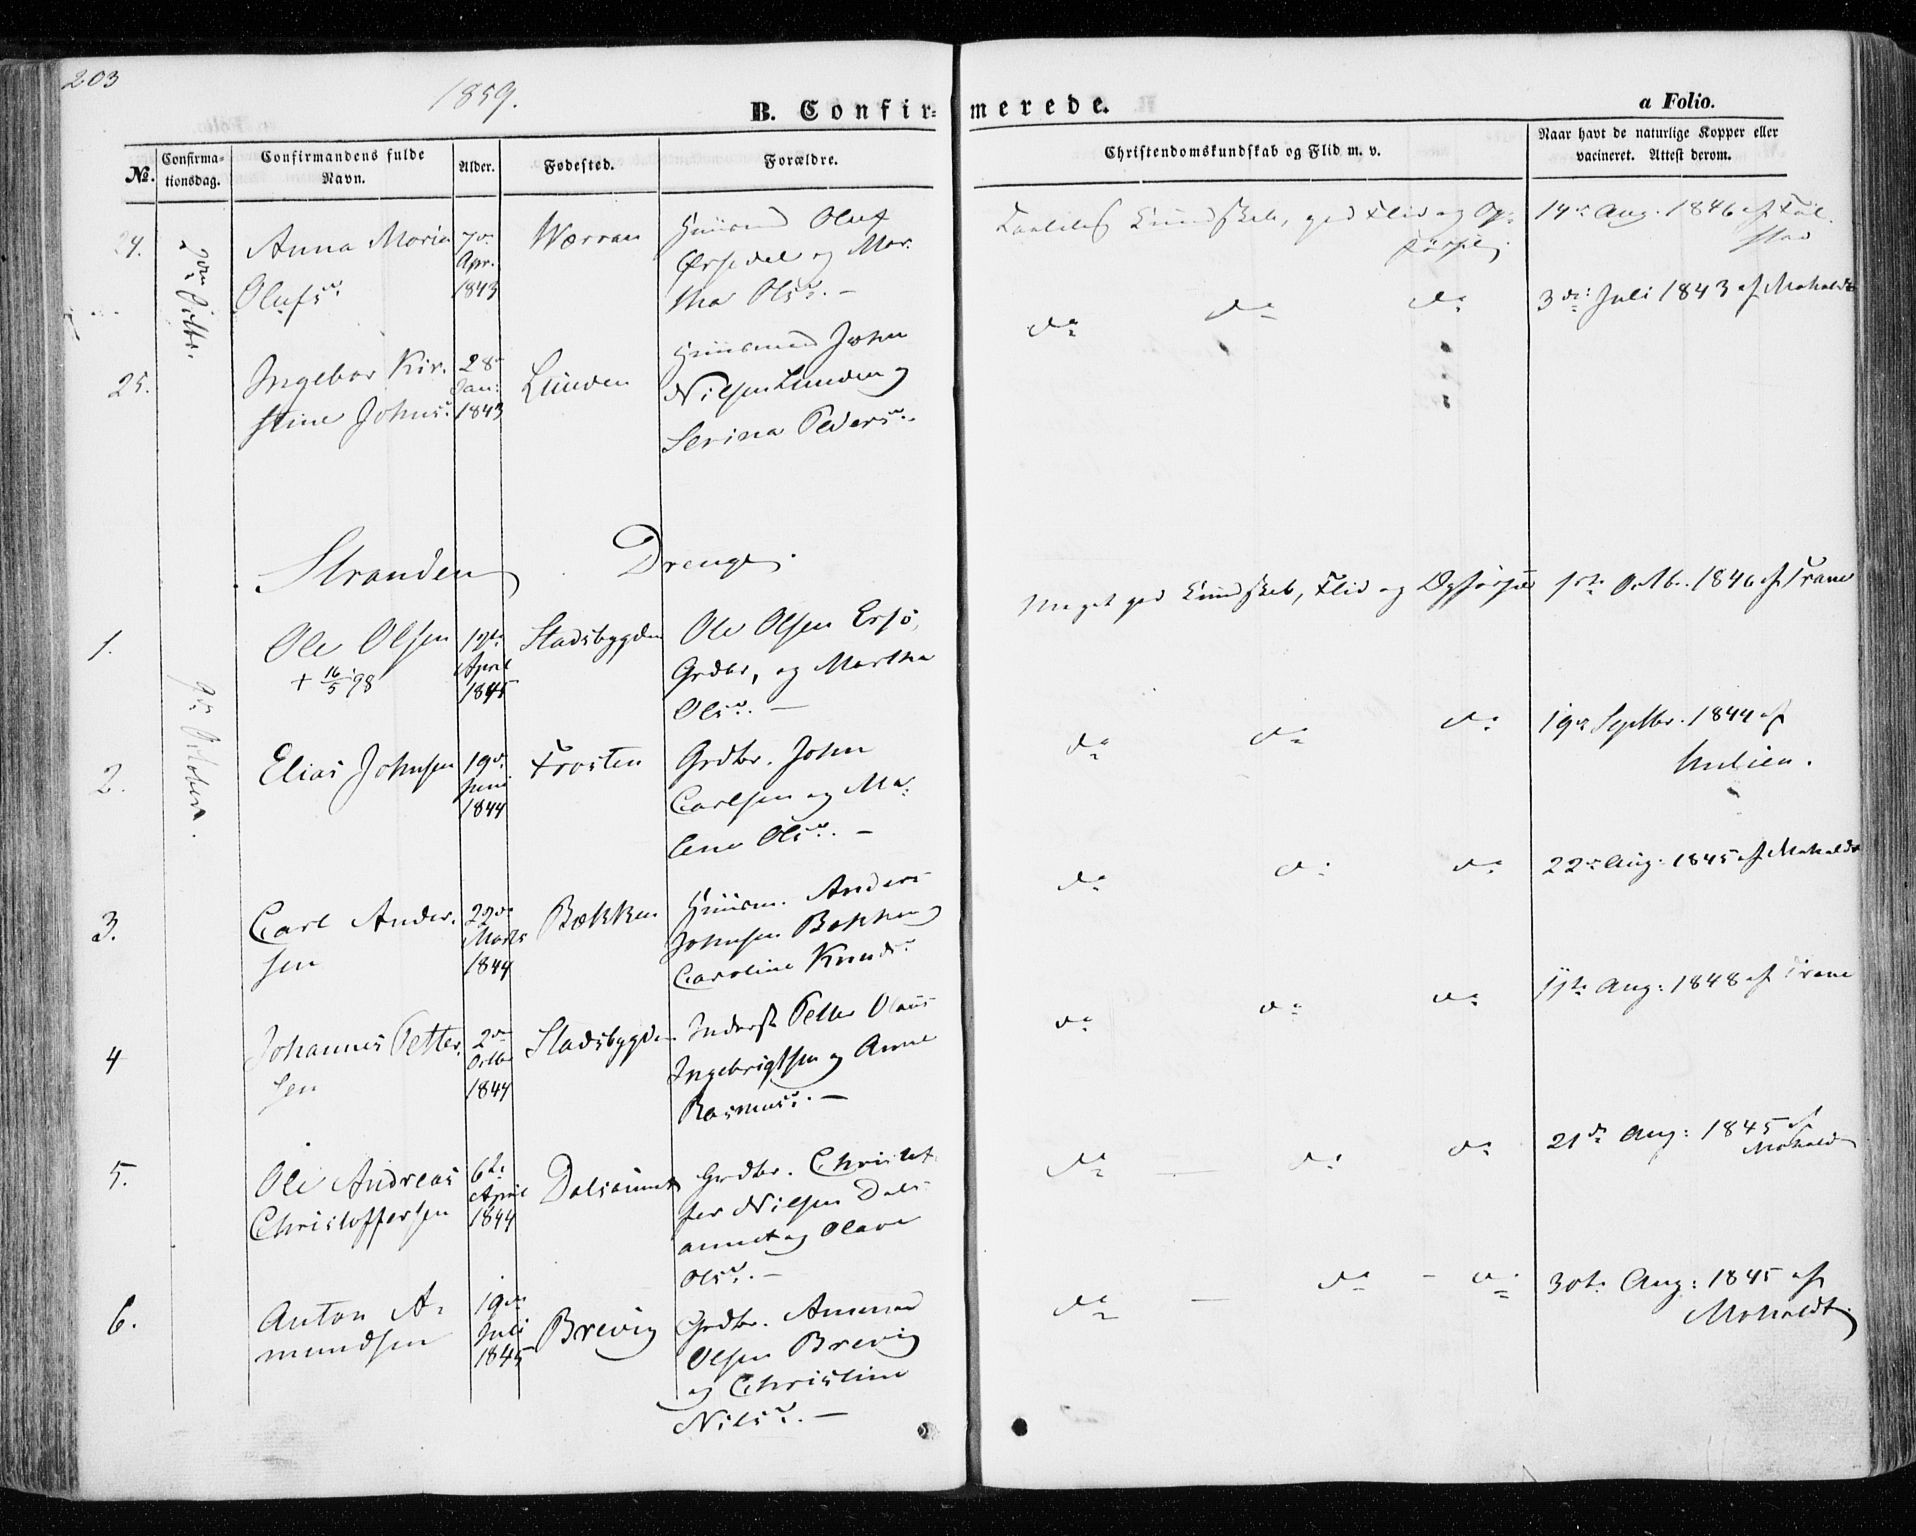 203
1859.
B. Confirmerede.
a Folio.
No.
Confirmationsdag.
Confirmandens fulde Navn.
Alder.
Fødested.
Forældre.
Christendomskundskab og Flid m. v.
Naar havt de naturlige Kopper eller vacineret. Attest derom.
24.
2den Octbr.
Anna Maria
Olufsd.
7de
Apr.
1843
Værran
Huusmd Oluf
og Mar-
tha Olsd. —
Kundskab, god Flid og Op-
førsel
14de Aug. 1846 af Fal-
stad
25.
Ingebor Kir-
stine Johnsd.
28de
Jan:
1843
Lunden
Huusmand John
Nilsen Lunden og
Serina Pedersd.
do do do
3die Juli 1843 af Moholdt
Stranden Drenge.
9de October.
1.
Ole Olsen
+ 16/5 98
April
1845
Stadsbygden
Ole Olsen Ersø,
Grdbr, og Martha
Olsd. —
Meget god Kundskab, Flid og Opførsel
1ste Octb. 1846 af Trane
2.
Elias Johnsen
19de
Juni
1844
Frosten
Grdbr. John
Carlsen og Ma-
lene Olsd. —
do do do
19de Septbr. 1844 af
3.
Carl Ander-
sen
22de
Marts
1844
Bækken
Huusm. Anders
Johnsen Bækken og
Caroline Knudsd.
do do do
22de Aug: 1845 af Moholdt
4
Johannes Petter-
sen
2den
Octbr
1844
Stadsbygden
Inderst Petter Olaus
Ingebrigtsen og Anne
Rasmusd. —
do do do
11te Aug: 1848 af Trane
5.
Ole Andreas
Christoffersen
6te
April
1844
Dalsaunet
Grdbr. Christof-
fer Nilsen Dals-
aunet og Olave
Olsd. —
do — do do
21de Aug: 1845 af
Moholdt
6.
Anton A-
mundsen
19de
Juli
1845
Brevig
Grdbr. Amund
Olsen Brevig
og Christine
Nilsd. —
do — do — do
30te Aug: 1845 af
Moholdt.